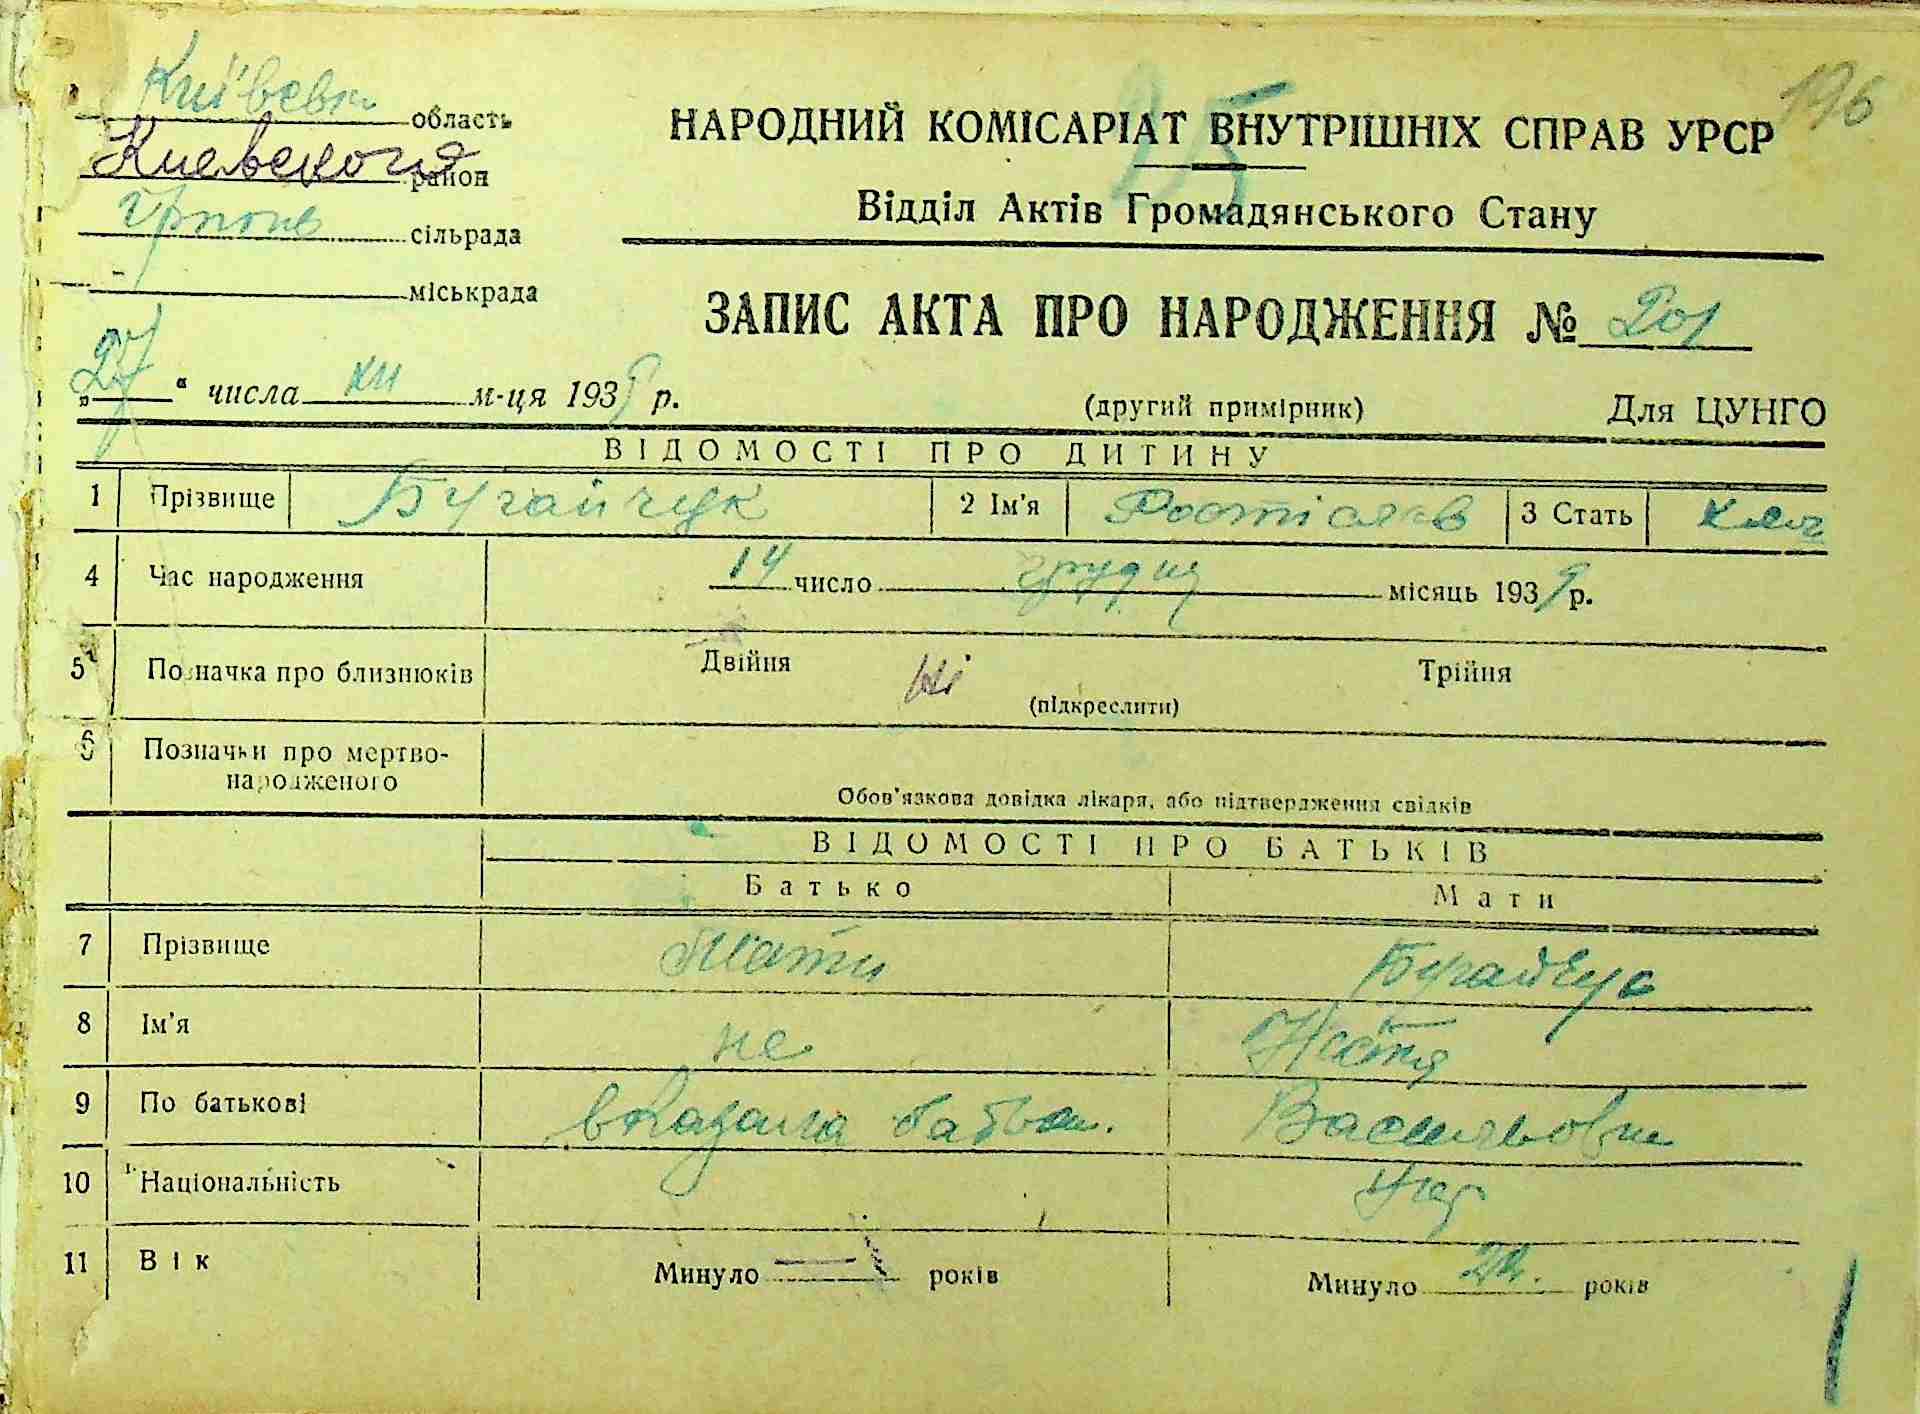 196
25
Київськ область
Киевского район
Ірпінь сільрада
міськрада
НАРОДНИЙ КОМІСАРІАТ ВНУТРІШНІХ СПРАВ УРСР
Відділ Актів Громадянського Стану
ЗАПИС АКТА ПРО НАРОДЖЕННЯ № 201
„27“ числа XII м-ця 1939 р.
(другий примірник) Для ЦУНГО
ВІДОМОСТІ ПРО ДИТИНУ
1 Прізвище Бугайчук 2 Ім'я Ростіслав 3 Стать
4 Час народження 14 число грудня місяць 1939 р.
5 Позначка про близнюків Двійня Ні Трійня
(підкреслити)
6 Позначки про мертво-
народженого
Обов'язкова довідка лікаря, або підтвердження свідків
ВІДОМОСТІ ПРО БАТЬКІВ
Батько Мати
7 Прізвище Мати Бугайчук
8 Ім'я не Настя
9 По батькові вказала батька. Васильовн
10 Національність Укр
11 Вік Минуло — років Минуло 22. років